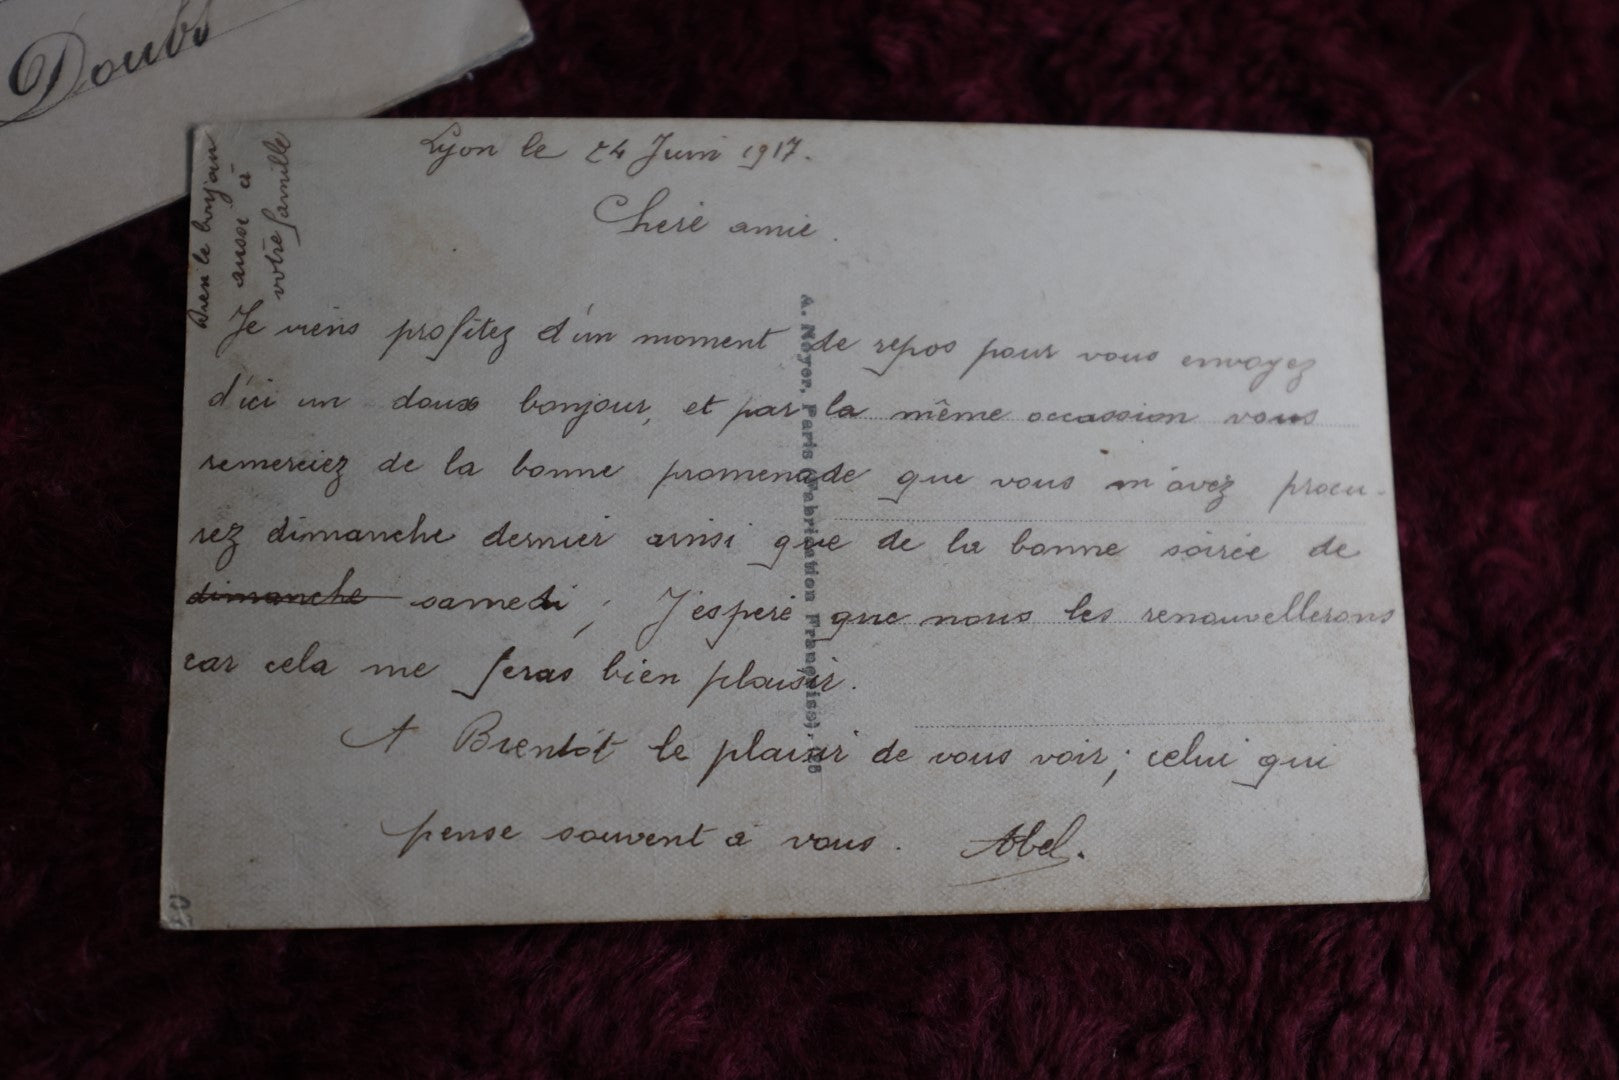 Doubs
Lyon le 24 Juin 1917.
Cheré amie.
Je viens profitez d'un moment de repos pour vous envoyez
d'ici un doux bonjour, et par la même occassion vous
remerciez de la bonne promenade que vous m'avez procu-
rez dimanche dernier ainsi que de la bonne soirée de
dimanche samedi, J'esperé que nous les renouvellerons
car cela me feras bien plaisir.
A Bientôt le plaisir de vous voir; celui qui
pense souvent à vous. Abel.
Bien le bonjour
aussi à
votre famille
A. Noyer, Paris (Fabrication Française).